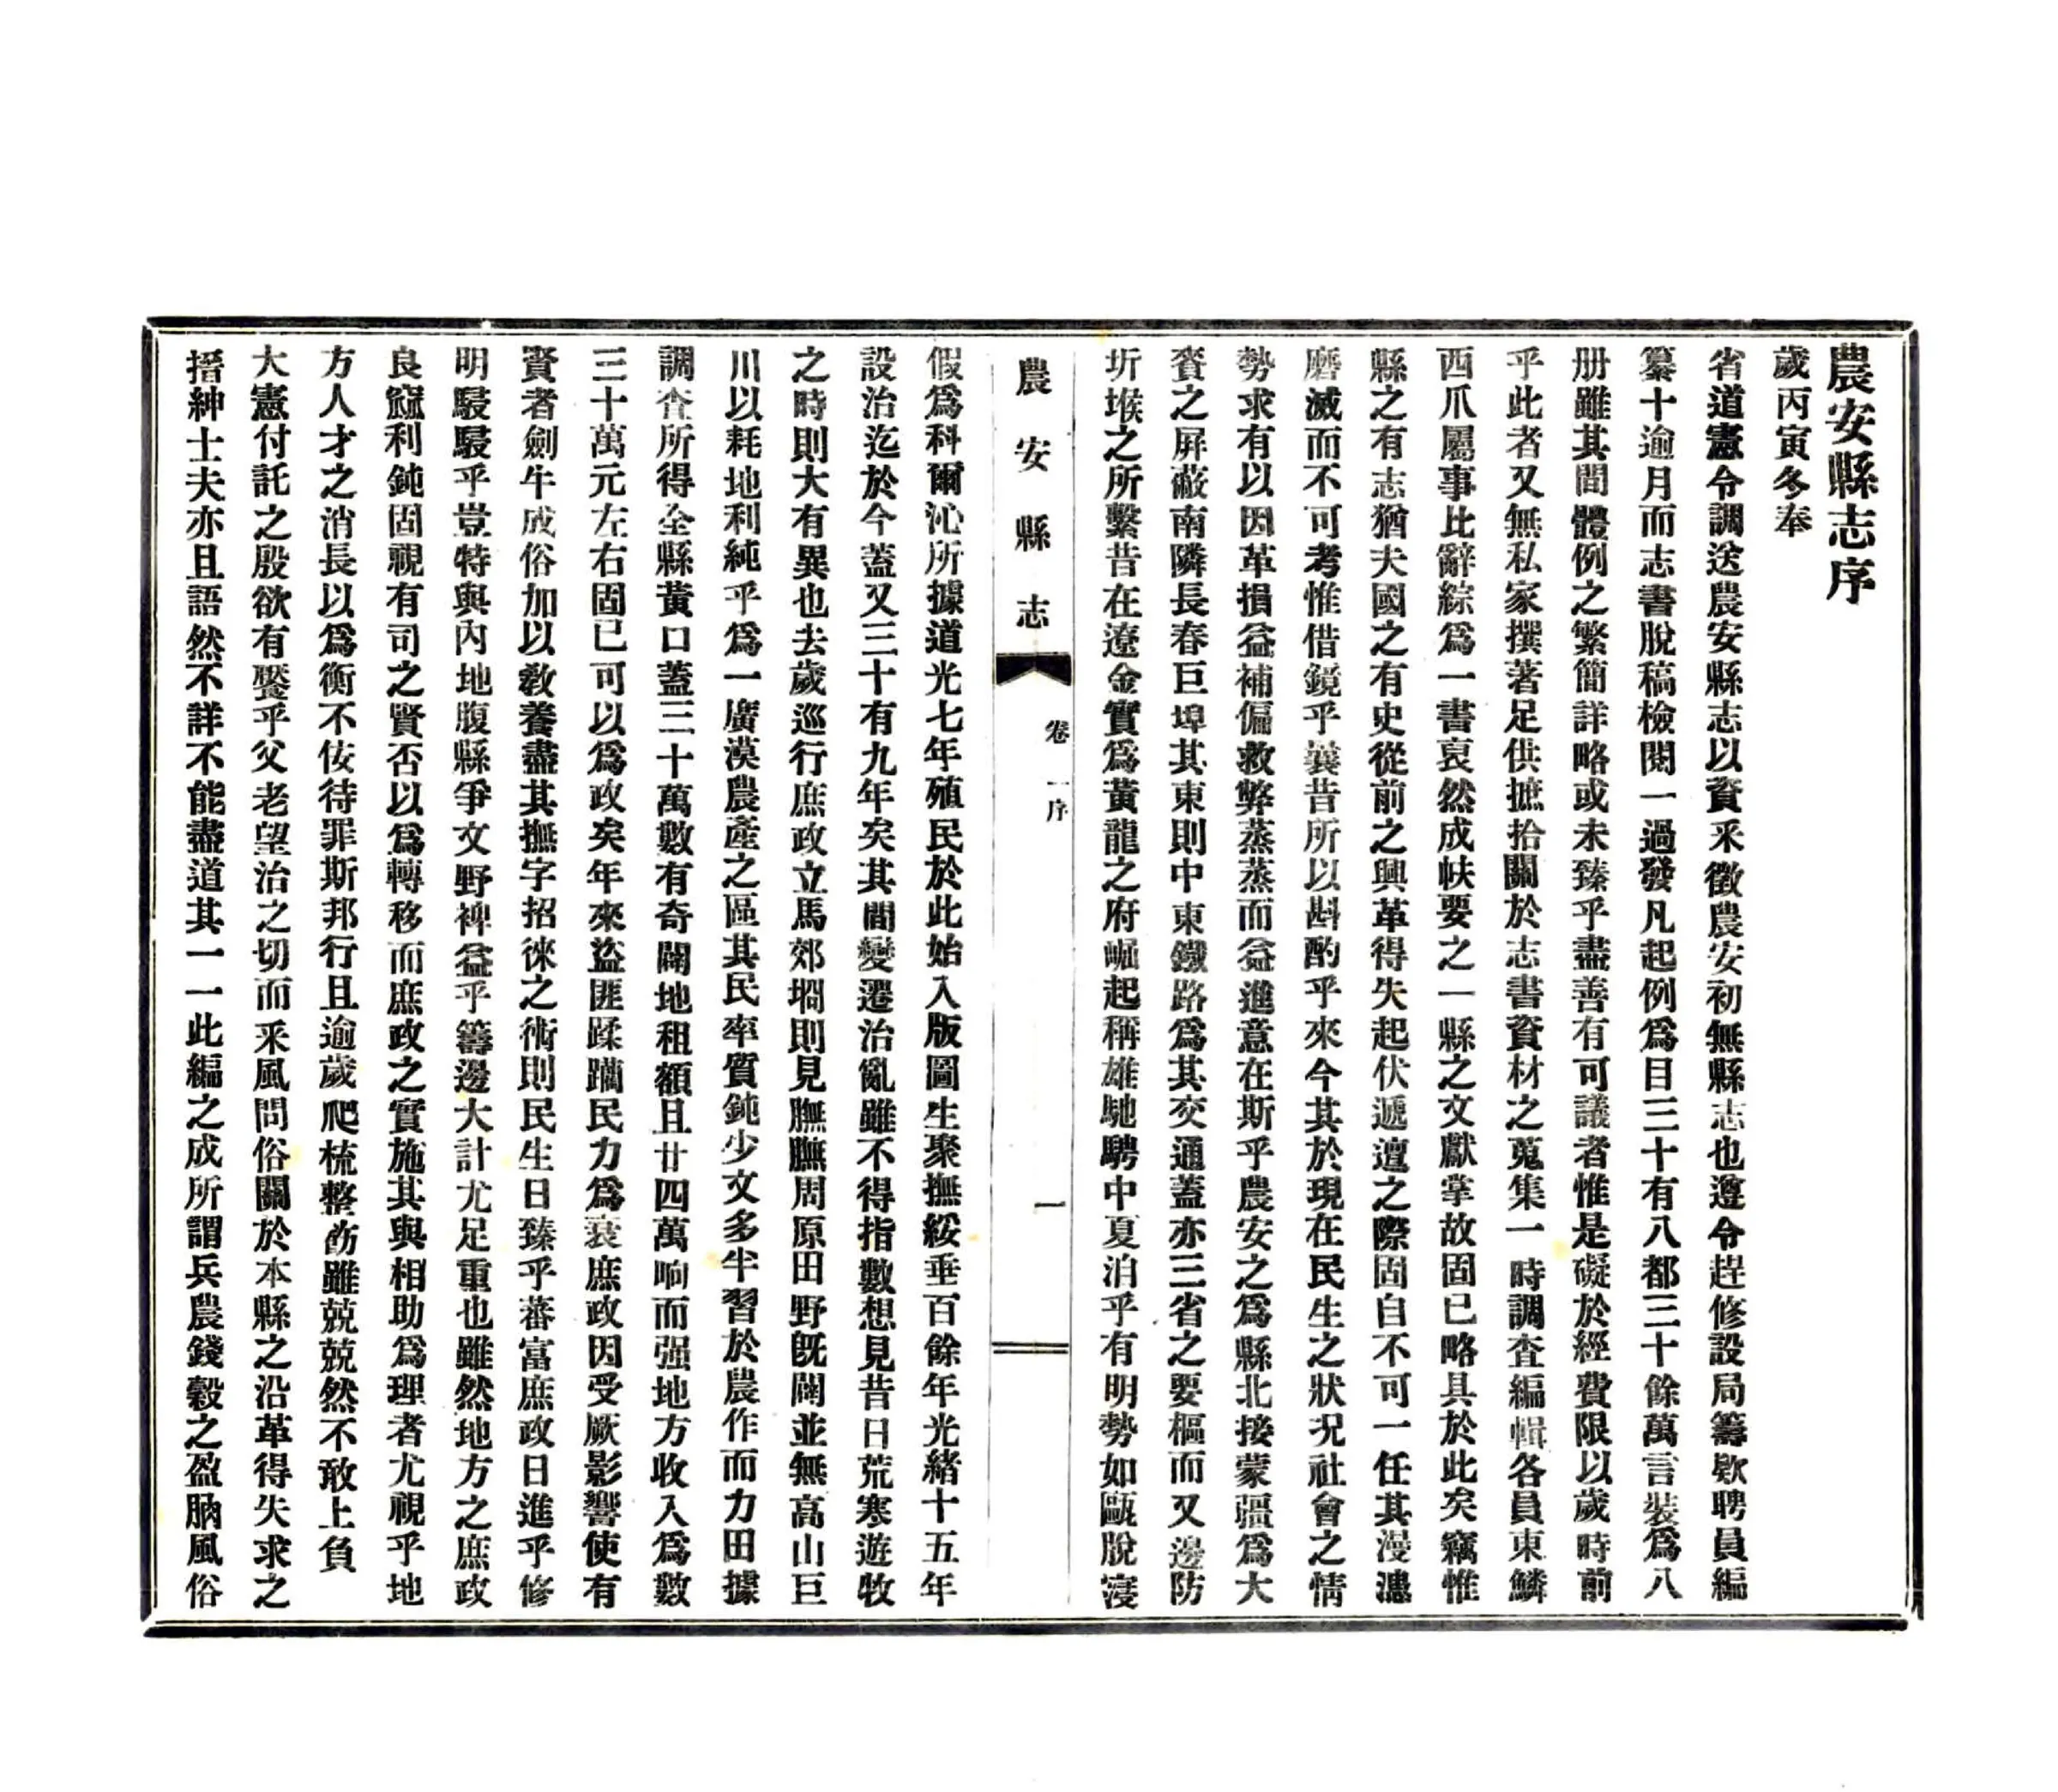 農安縣志序
歲丙寅冬奉
省道憲令調送農安縣志以資采徵農安初無縣志也遵令趕修設局籌欵聘員編
纂十逾月而志書脫稿檢閱一過發凡起例爲目三十有八都三十餘萬言裝爲八
册雖其間體例之繁簡詳略或未臻乎盡善有可議者惟是礙於經費限以歲時前
乎此者又無私家撰著足供摭拾關於志書資材之蒐集一時調查編輯各員東鱗
西爪屬事比辭綜爲一書裒然成帙要之一縣之文獻掌故固已略具於此矣竊惟
縣之有志猶夫國之有史從前之興革得失起伏遞遭之際固自不可一任其漫漶
磨滅而不可考惟借鏡乎曩昔所以斟酌乎來今其於現在民生之狀況社會之情
勢求有以因革損益補偏救弊蒸蒸而益進意在斯乎農安之爲縣北接蒙疆爲大
賚之屛蔽南隣長春巨埠其東則中東鐵路爲其交通蓋亦三省之要樞而又邊防
圻堠之所繫昔在遼金實爲黃龍之府崛起稱雄馳騁中夏洎乎有明勢如甌脫寖
農安縣志
卷一序
一
假爲科爾沁所據道光七年殖民於此始入版圖生聚撫綏垂百餘年光緒十五年
設治迄於今蓋又三十有九年矣其間變遷治亂雖不得指數想見昔日荒寒遊牧
之時則大有異也去歲巡行庶政立馬郊坰則見膴膴周原田野旣闢並無高山巨
川以耗地利純乎爲一廣漠農產之區其民率質鈍少文多半習於農作而力田據
調查所得全縣黃口蓋三十萬數有奇闢地租額且廿四萬晌而强地方收入爲數
三十萬元左右固已可以爲政矣年來盜匪蹂躪民力爲衰庶政因受厥影響使有
賢者劍牛成俗加以敎養盡其撫字招徠之術則民生日臻乎蕃富庶政日進乎修
明駸駸乎豈特與內地腹縣爭文野裨益乎籌邊大計尤足重也雖然地方之庶政
良窳利鈍固視有司之賢否以爲轉移而庶政之實施其與相助爲理者尤視乎地
方人才之消長以爲衡不佞待罪斯邦行且逾歲爬梳整飭雖兢兢然不敢上負
大憲付託之殷欲有饜乎父老望治之切而采風問俗關於本縣之沿革得失求之
搢紳士夫亦且語然不詳不能盡道其一一此編之成所謂兵農錢穀之盈朒風俗